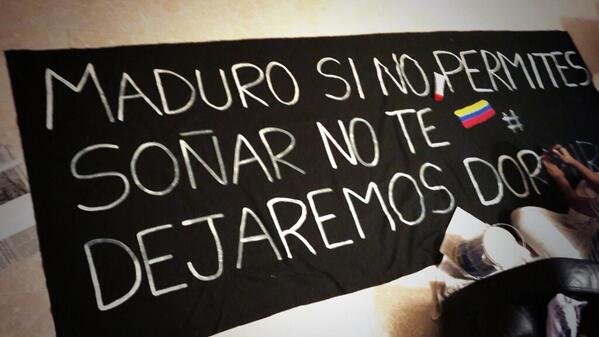 MADURO SI NO, PERMITES
SOÑAR NO TE #
DEJAREMOS DOR